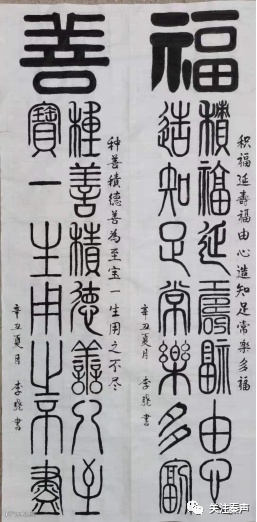 福
積福延壽福由心
造知足常樂多福
积福延壽福由心造知足常樂多福
辛丑夏月 李 書
善
種善積德善為至
寶一生用之不盡
种善積德善為至宝一生用之不尽
辛丑夏月 李 書
关注秦声